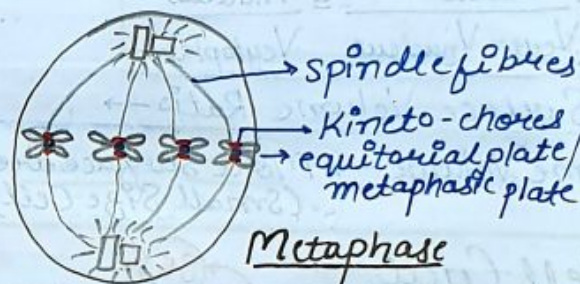 spindle fibres
Kineto-chores
equitorial plate/
metaphasic plate
Metaphase